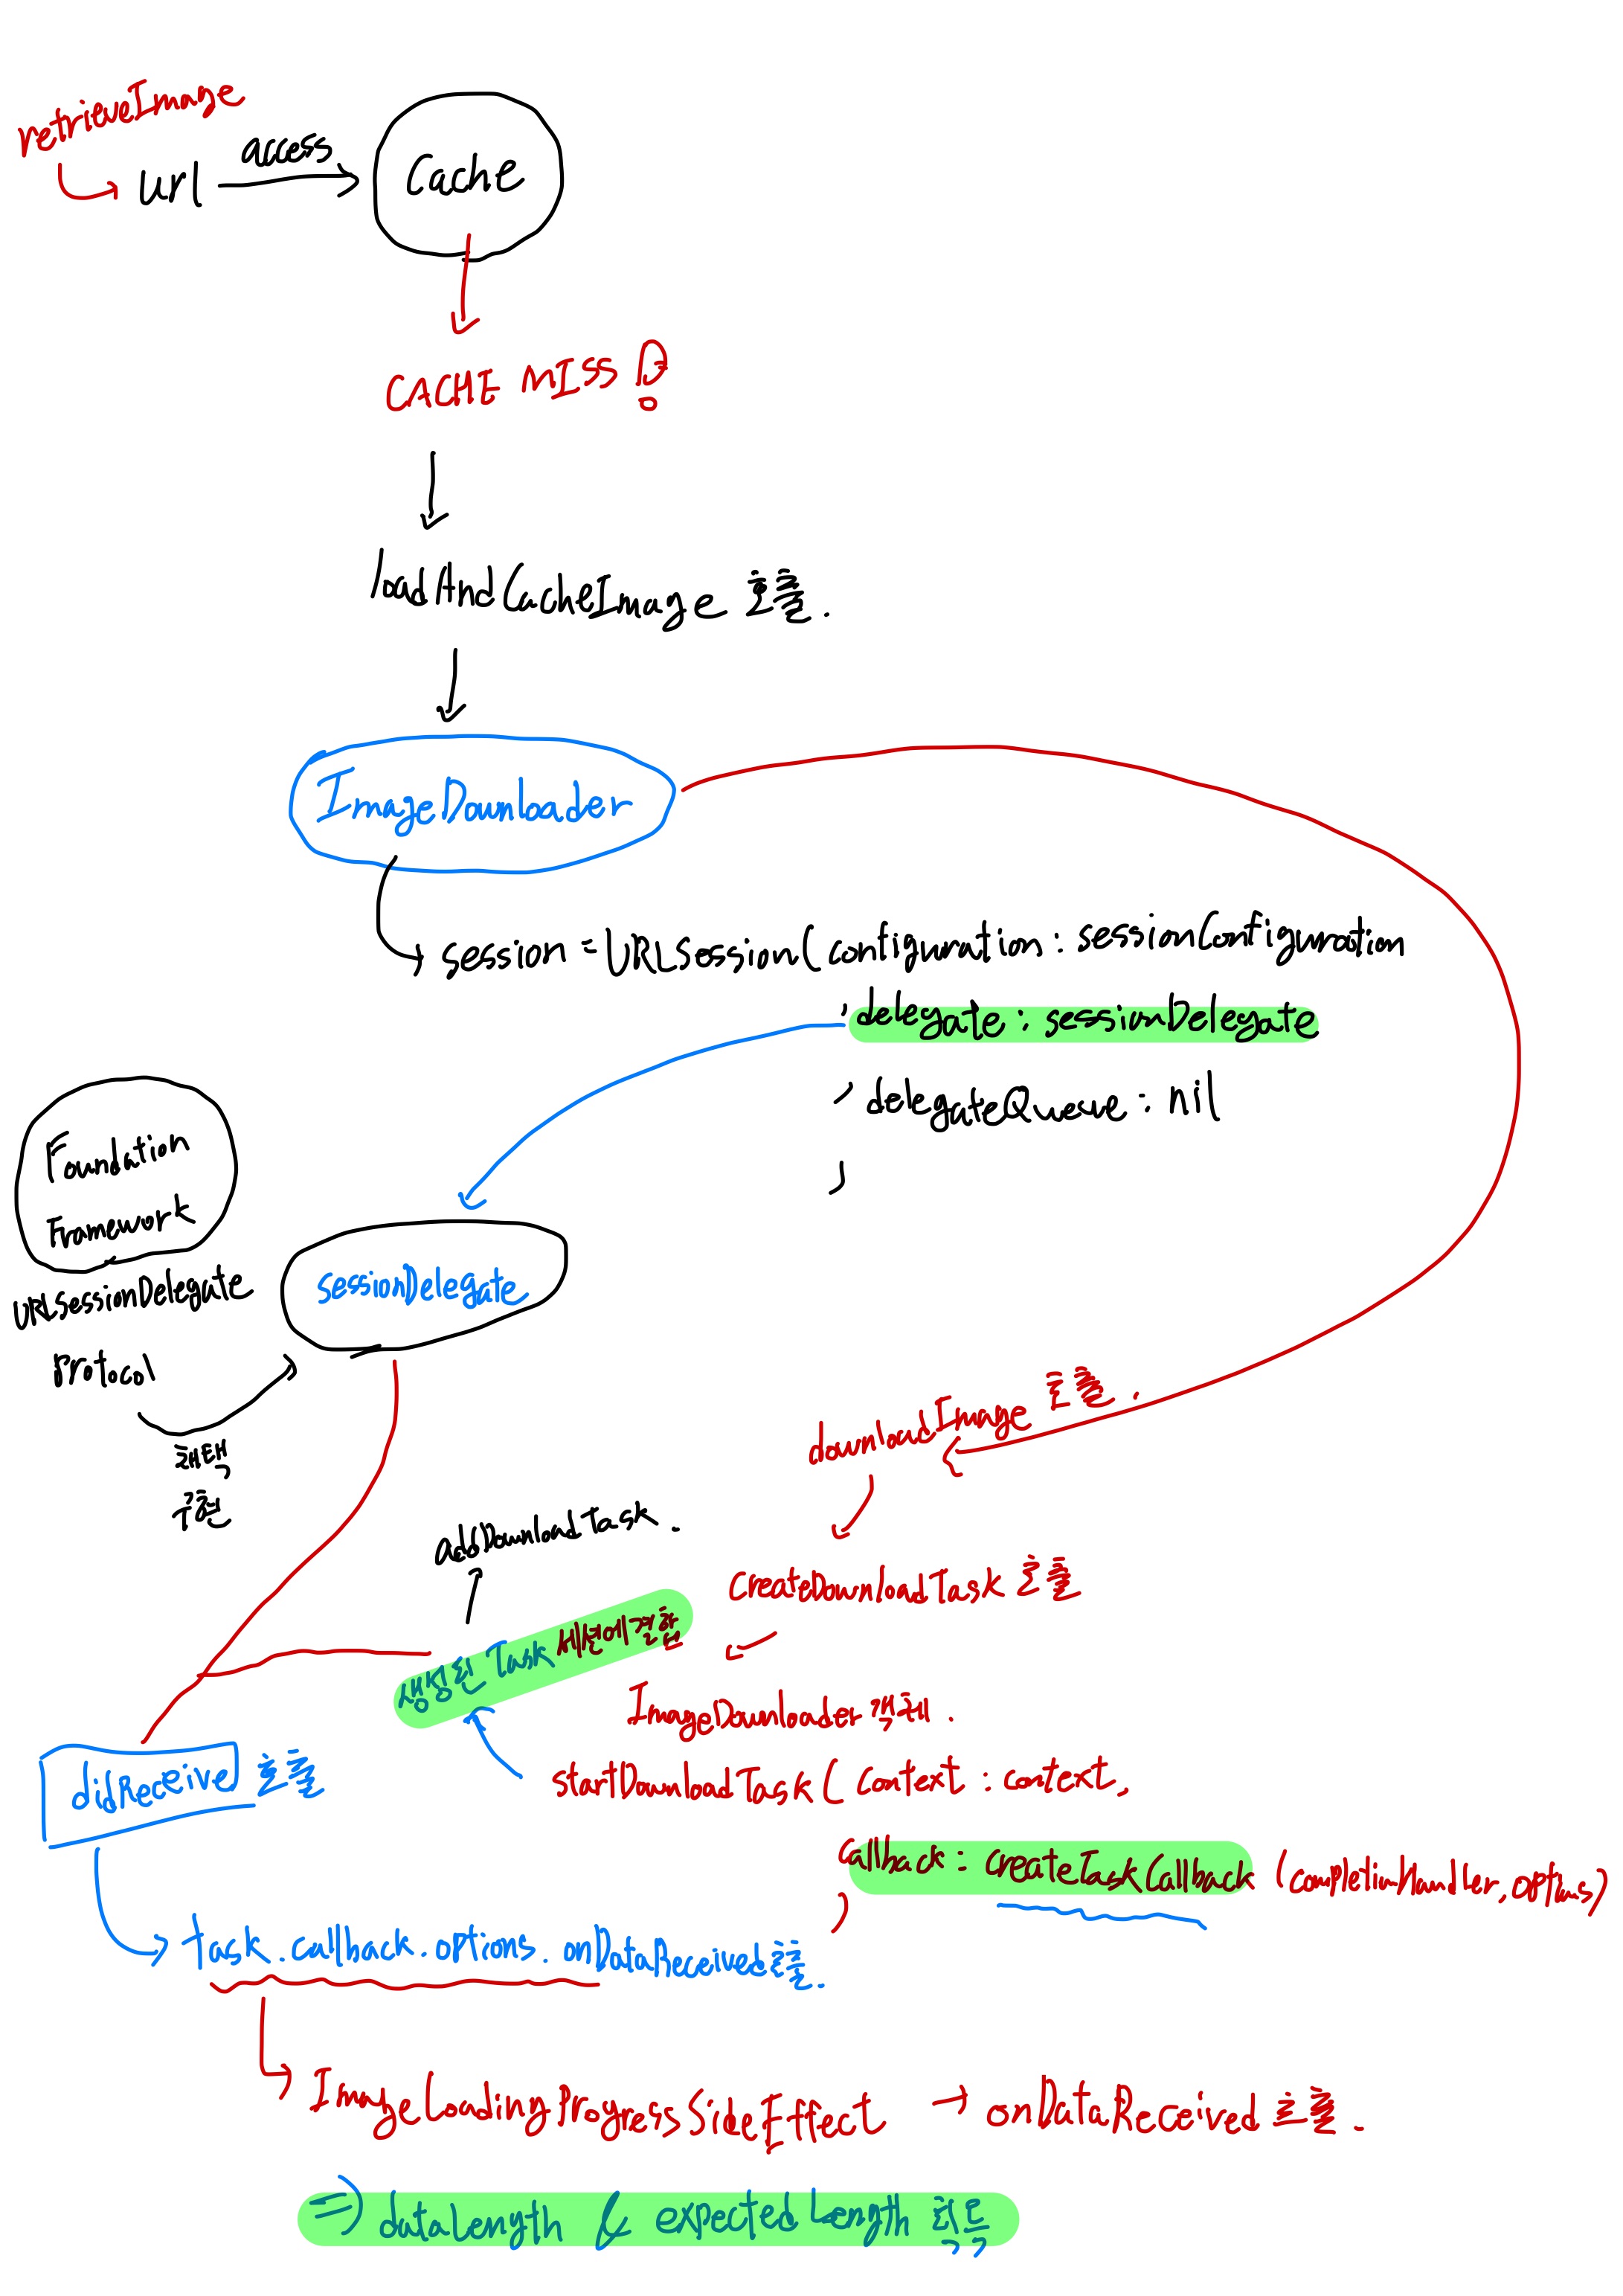 retrieveImage
url
access
Cache
CACHE MISS !
loadAndCacheImage 호출.
ImageDownloader
session = URLSession(configuration : sessionConfiguration
, delegate : sessionDelegate
, delegateQueue : nil
)
Foundation
Framework
URLSessionDelegate
protocol
채택
구현
sessionDelegate
downloadImage 호출.
createDownloadTask 호출
ImageDownloader 객체.
startDownloadTask ( context : context,
callback : createTaskCallback (completionHandler, options)
)
addDownloadTask.
생성된 Task 세션에 결합
didReceive 호출
task.callback.options.onDataReceived 호출.
ImageLoadingProgressSideEffect → onDataReceived 호출.
⇒ dataLength & expectedLength 획득